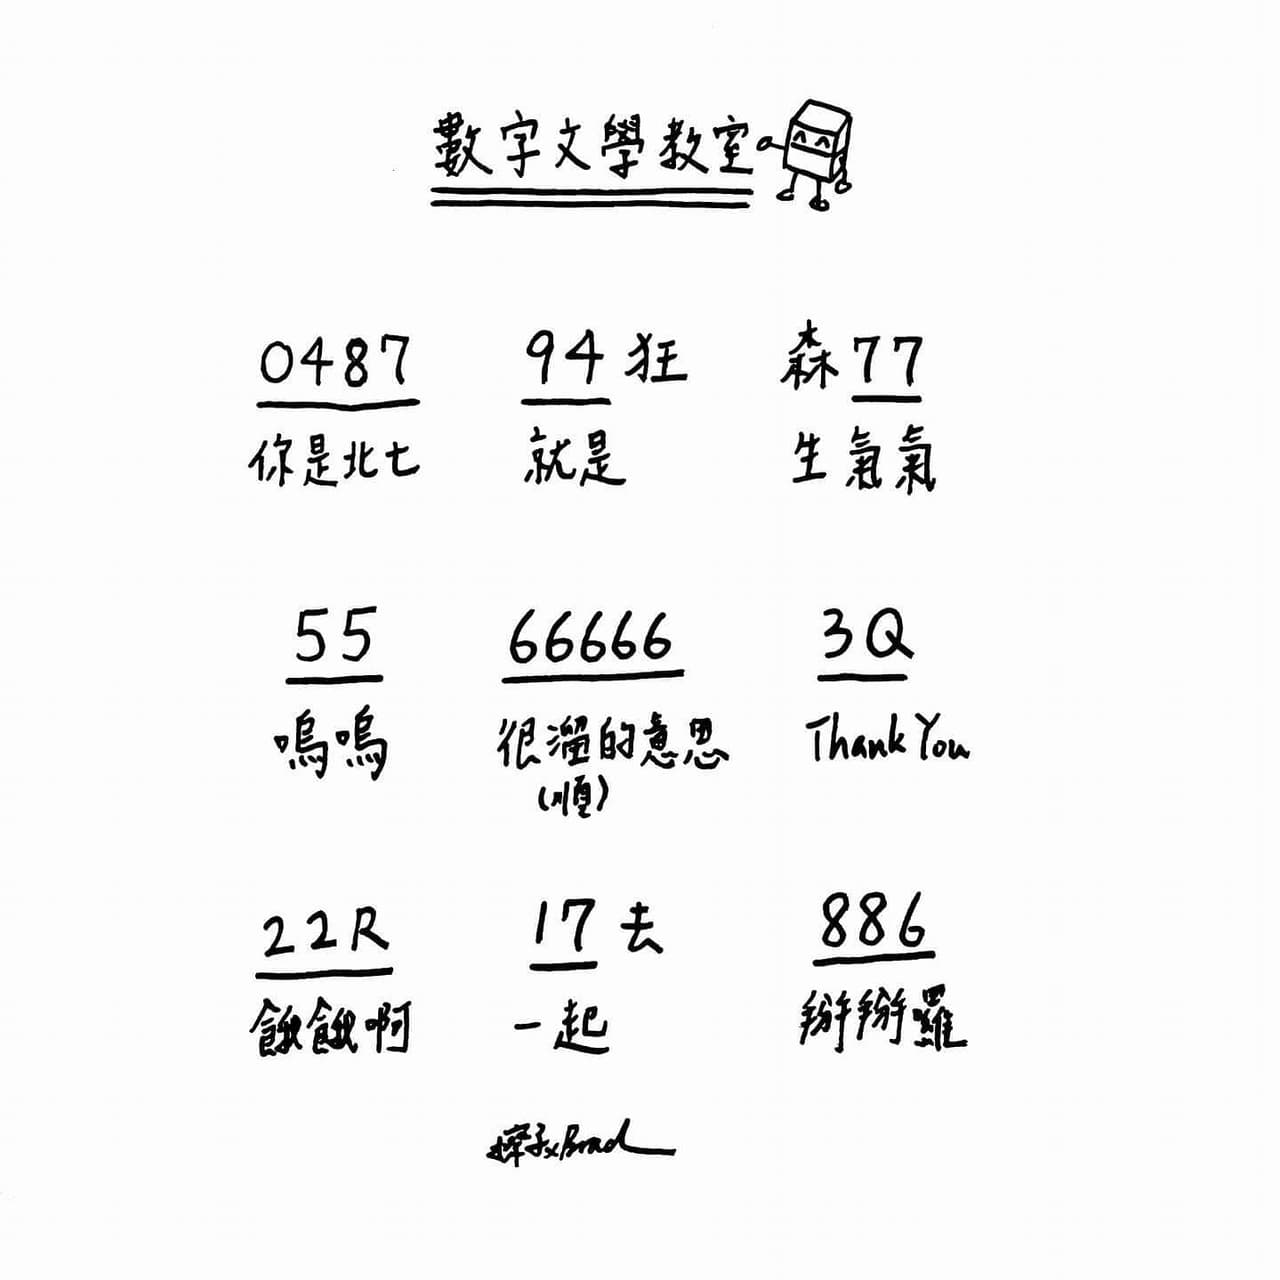 數字文學教室
0487 94狂 森77
你是北七 就是 生氣氣
55 66666 3Q
嗚嗚 很溜的意思 Thank You
(順)
22R 17去 886
餓餓啊 一起 掰掰囉
擦子xBrad